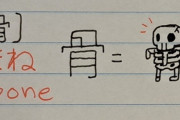 骨]
ほね
bone
骨 =